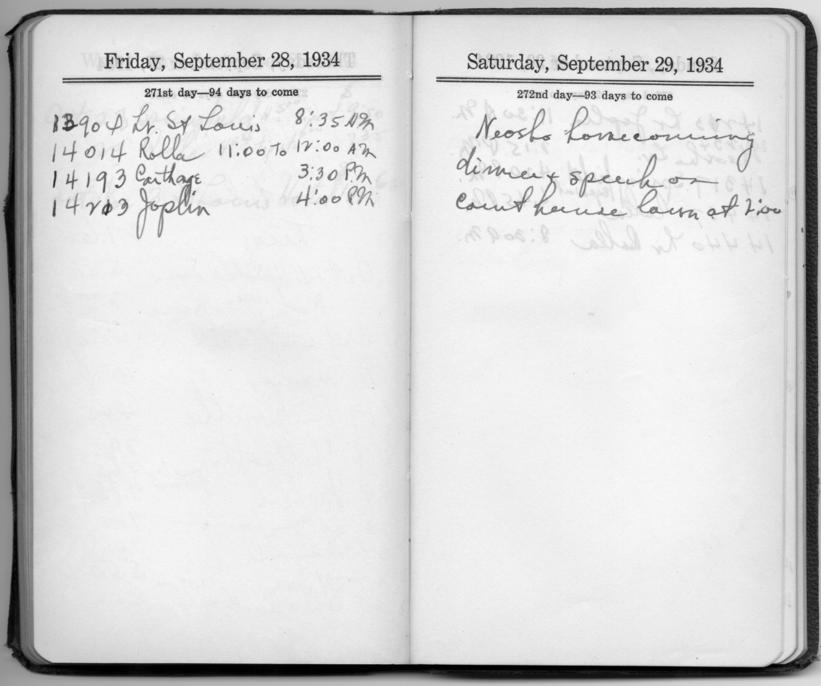 Friday, September 28, 1934
271st day—94 days to come
13904 Lv. St Louis 8:35 AM
14014 Rolla 11:00 To 12:00 AM
14193 Carthage 3:30 P.M.
14203 Joplin 4:00 PM
Saturday, September 29, 1934
272nd day—93 days to come
Neosho homecoming
dinner & speech on
court house lawn at 2:00